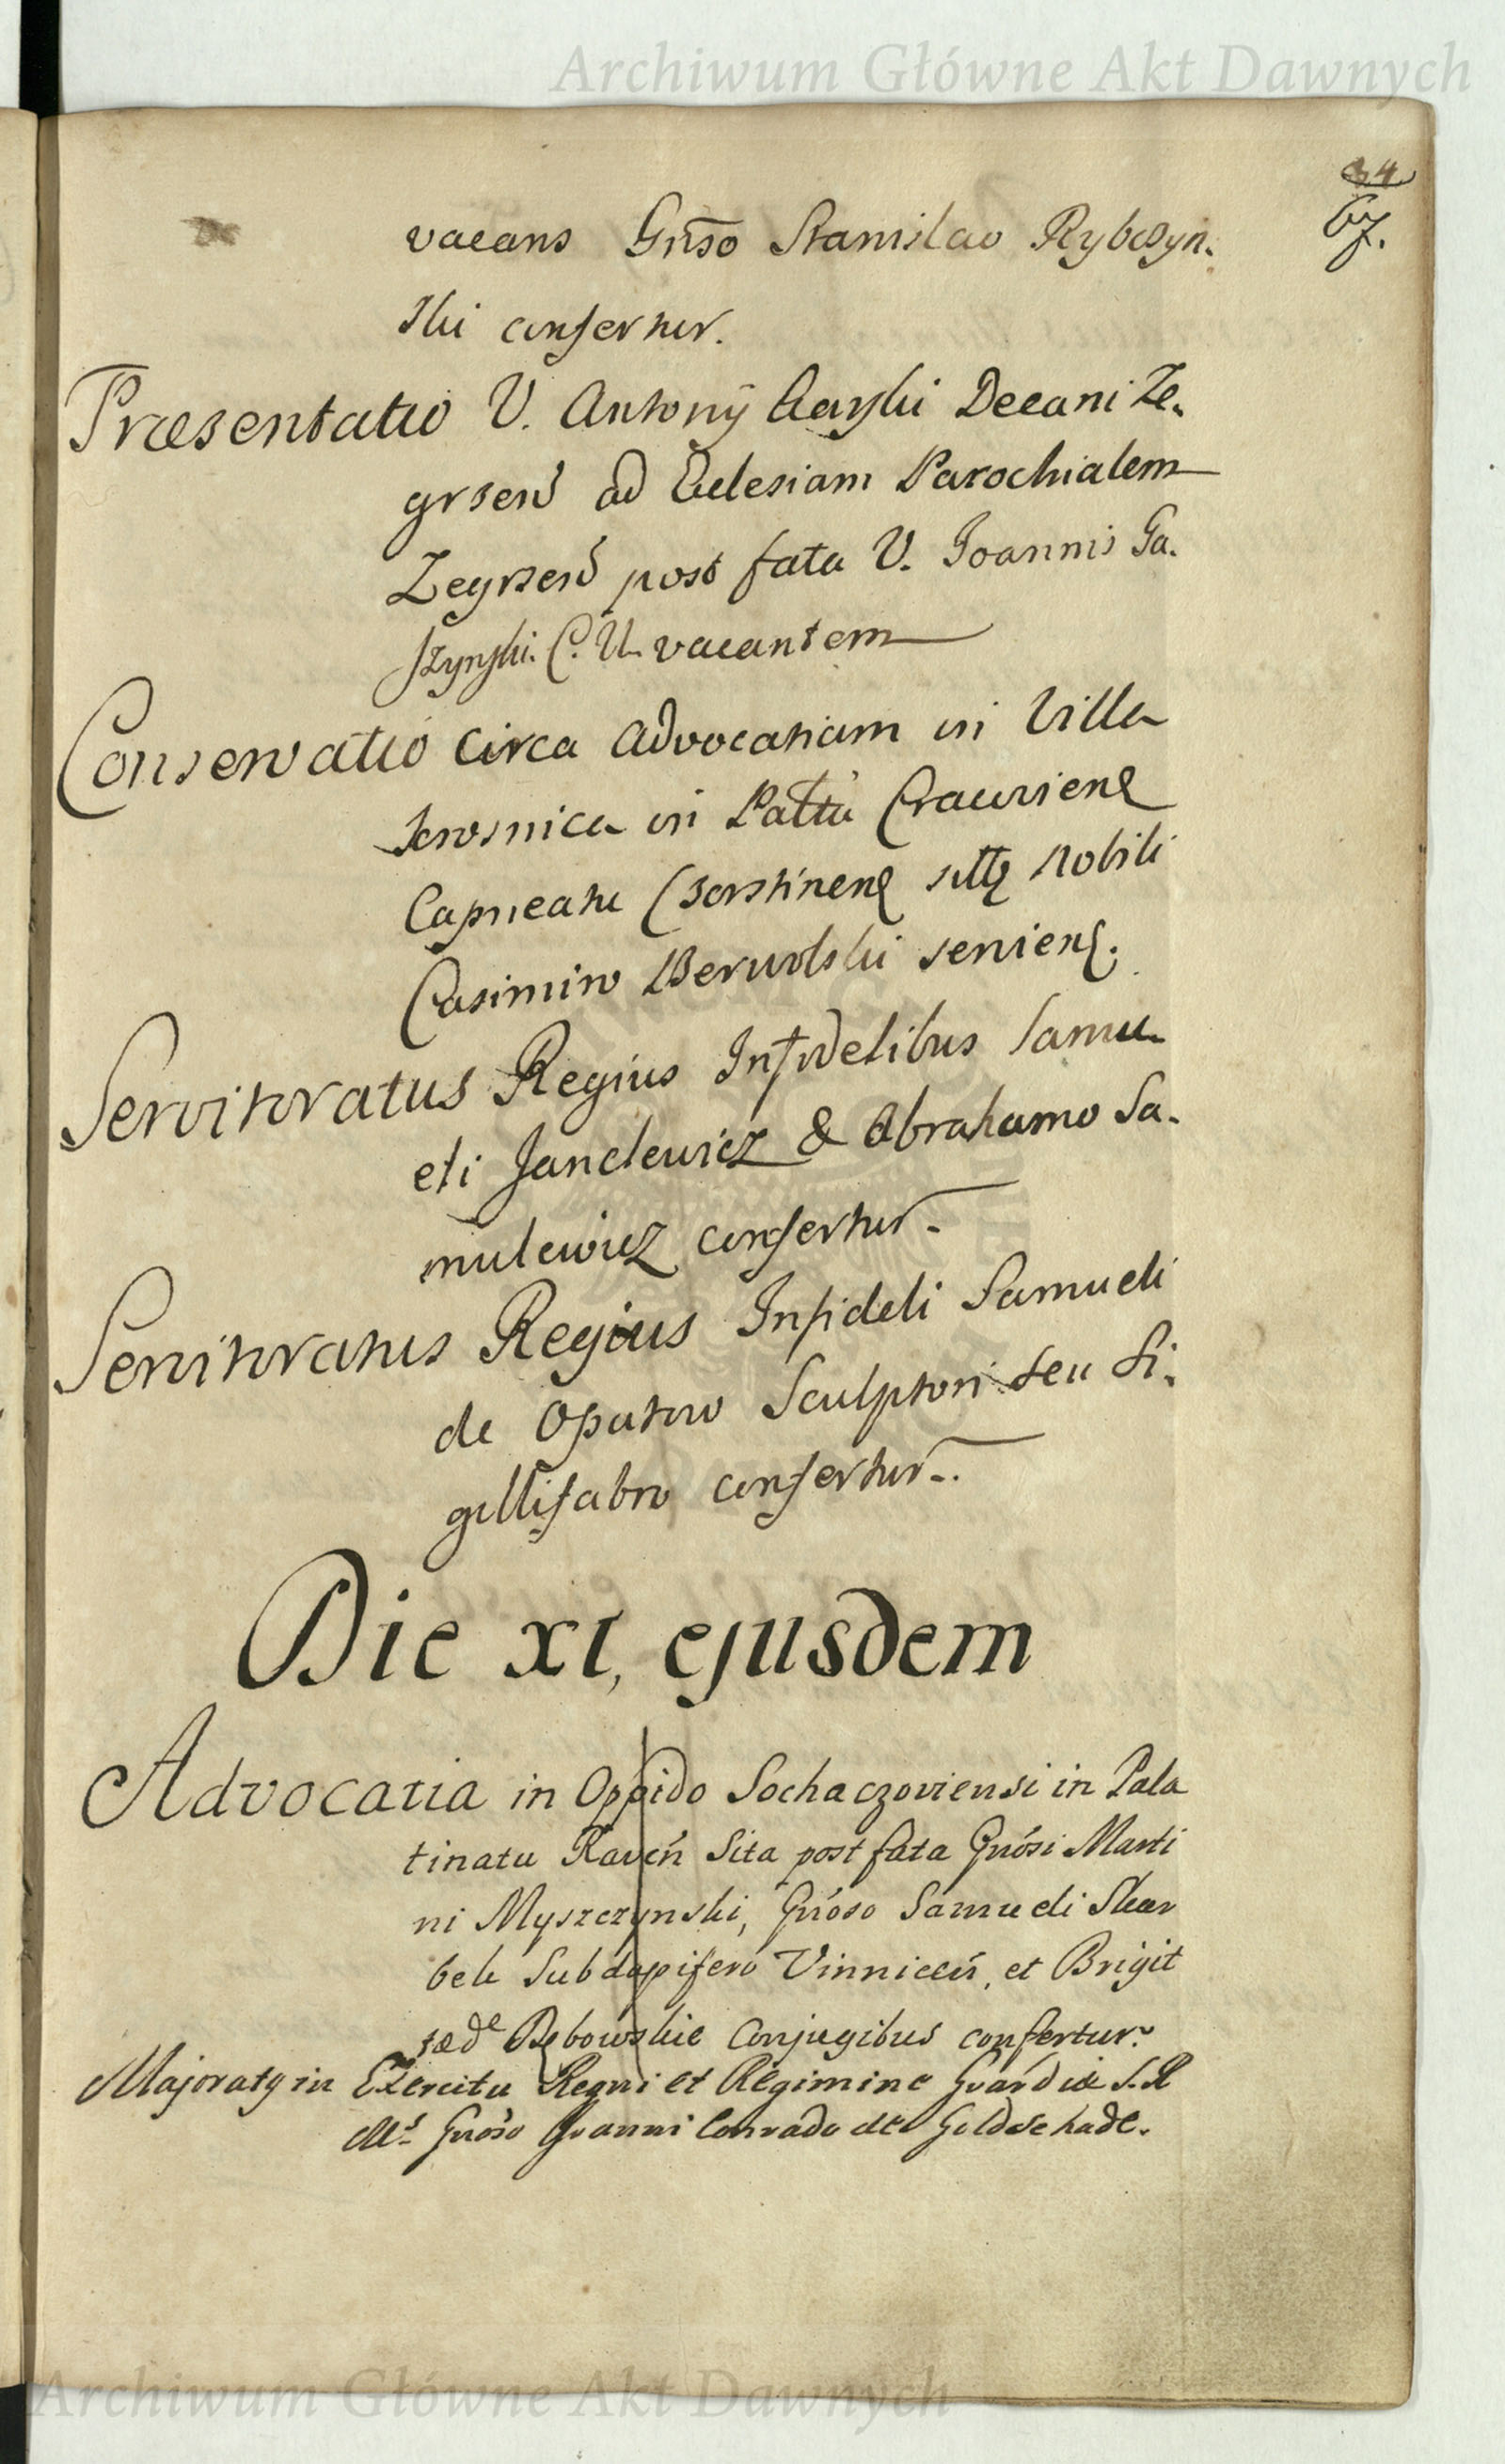 Archiwum Główne Akt Dawnych
34
67.
vacans Gnŝo Stanislao Rybczyn.
ski confertur.
Præsentatio V. Antonÿ Decani Ze.
grzeń ad Ecclesiam Parochialem
Zegrzeń post fata V. Joannis Ga.
szynski. C. U. vacantem
Conservatio circa Advocatiam in Villa
in Pałtu Cracovien
Capneatu Czorstinen sittę Nobili
Casimiro Berwolski serviens.
Servitoratus Regius Infidelibus Samu.
eli Janclewicz & Abrahamo Sa.
mulewicz confertur.
Servitoratus Regius Infideli Samueli
de Opatow Sculptori seu Si.
gillifabro confertur.
Die XI, ejusdem
Advocatia in Oppido Sochaczoviensi in Pala
tinatu Raveń Sita post fata Gnósi Marti
ni Myszczynski, Gnóso Samueli Skar
bek Subdapifero Vinniceń, et Brigit
tæ de Conjugibus confertur.
Majoratq in Exercitu Regni et Regimine Gvardiæ S. R
Ms. Gnóso Joanni Conrado de Goldschade.
Archiwum Główne Akt Dawnych